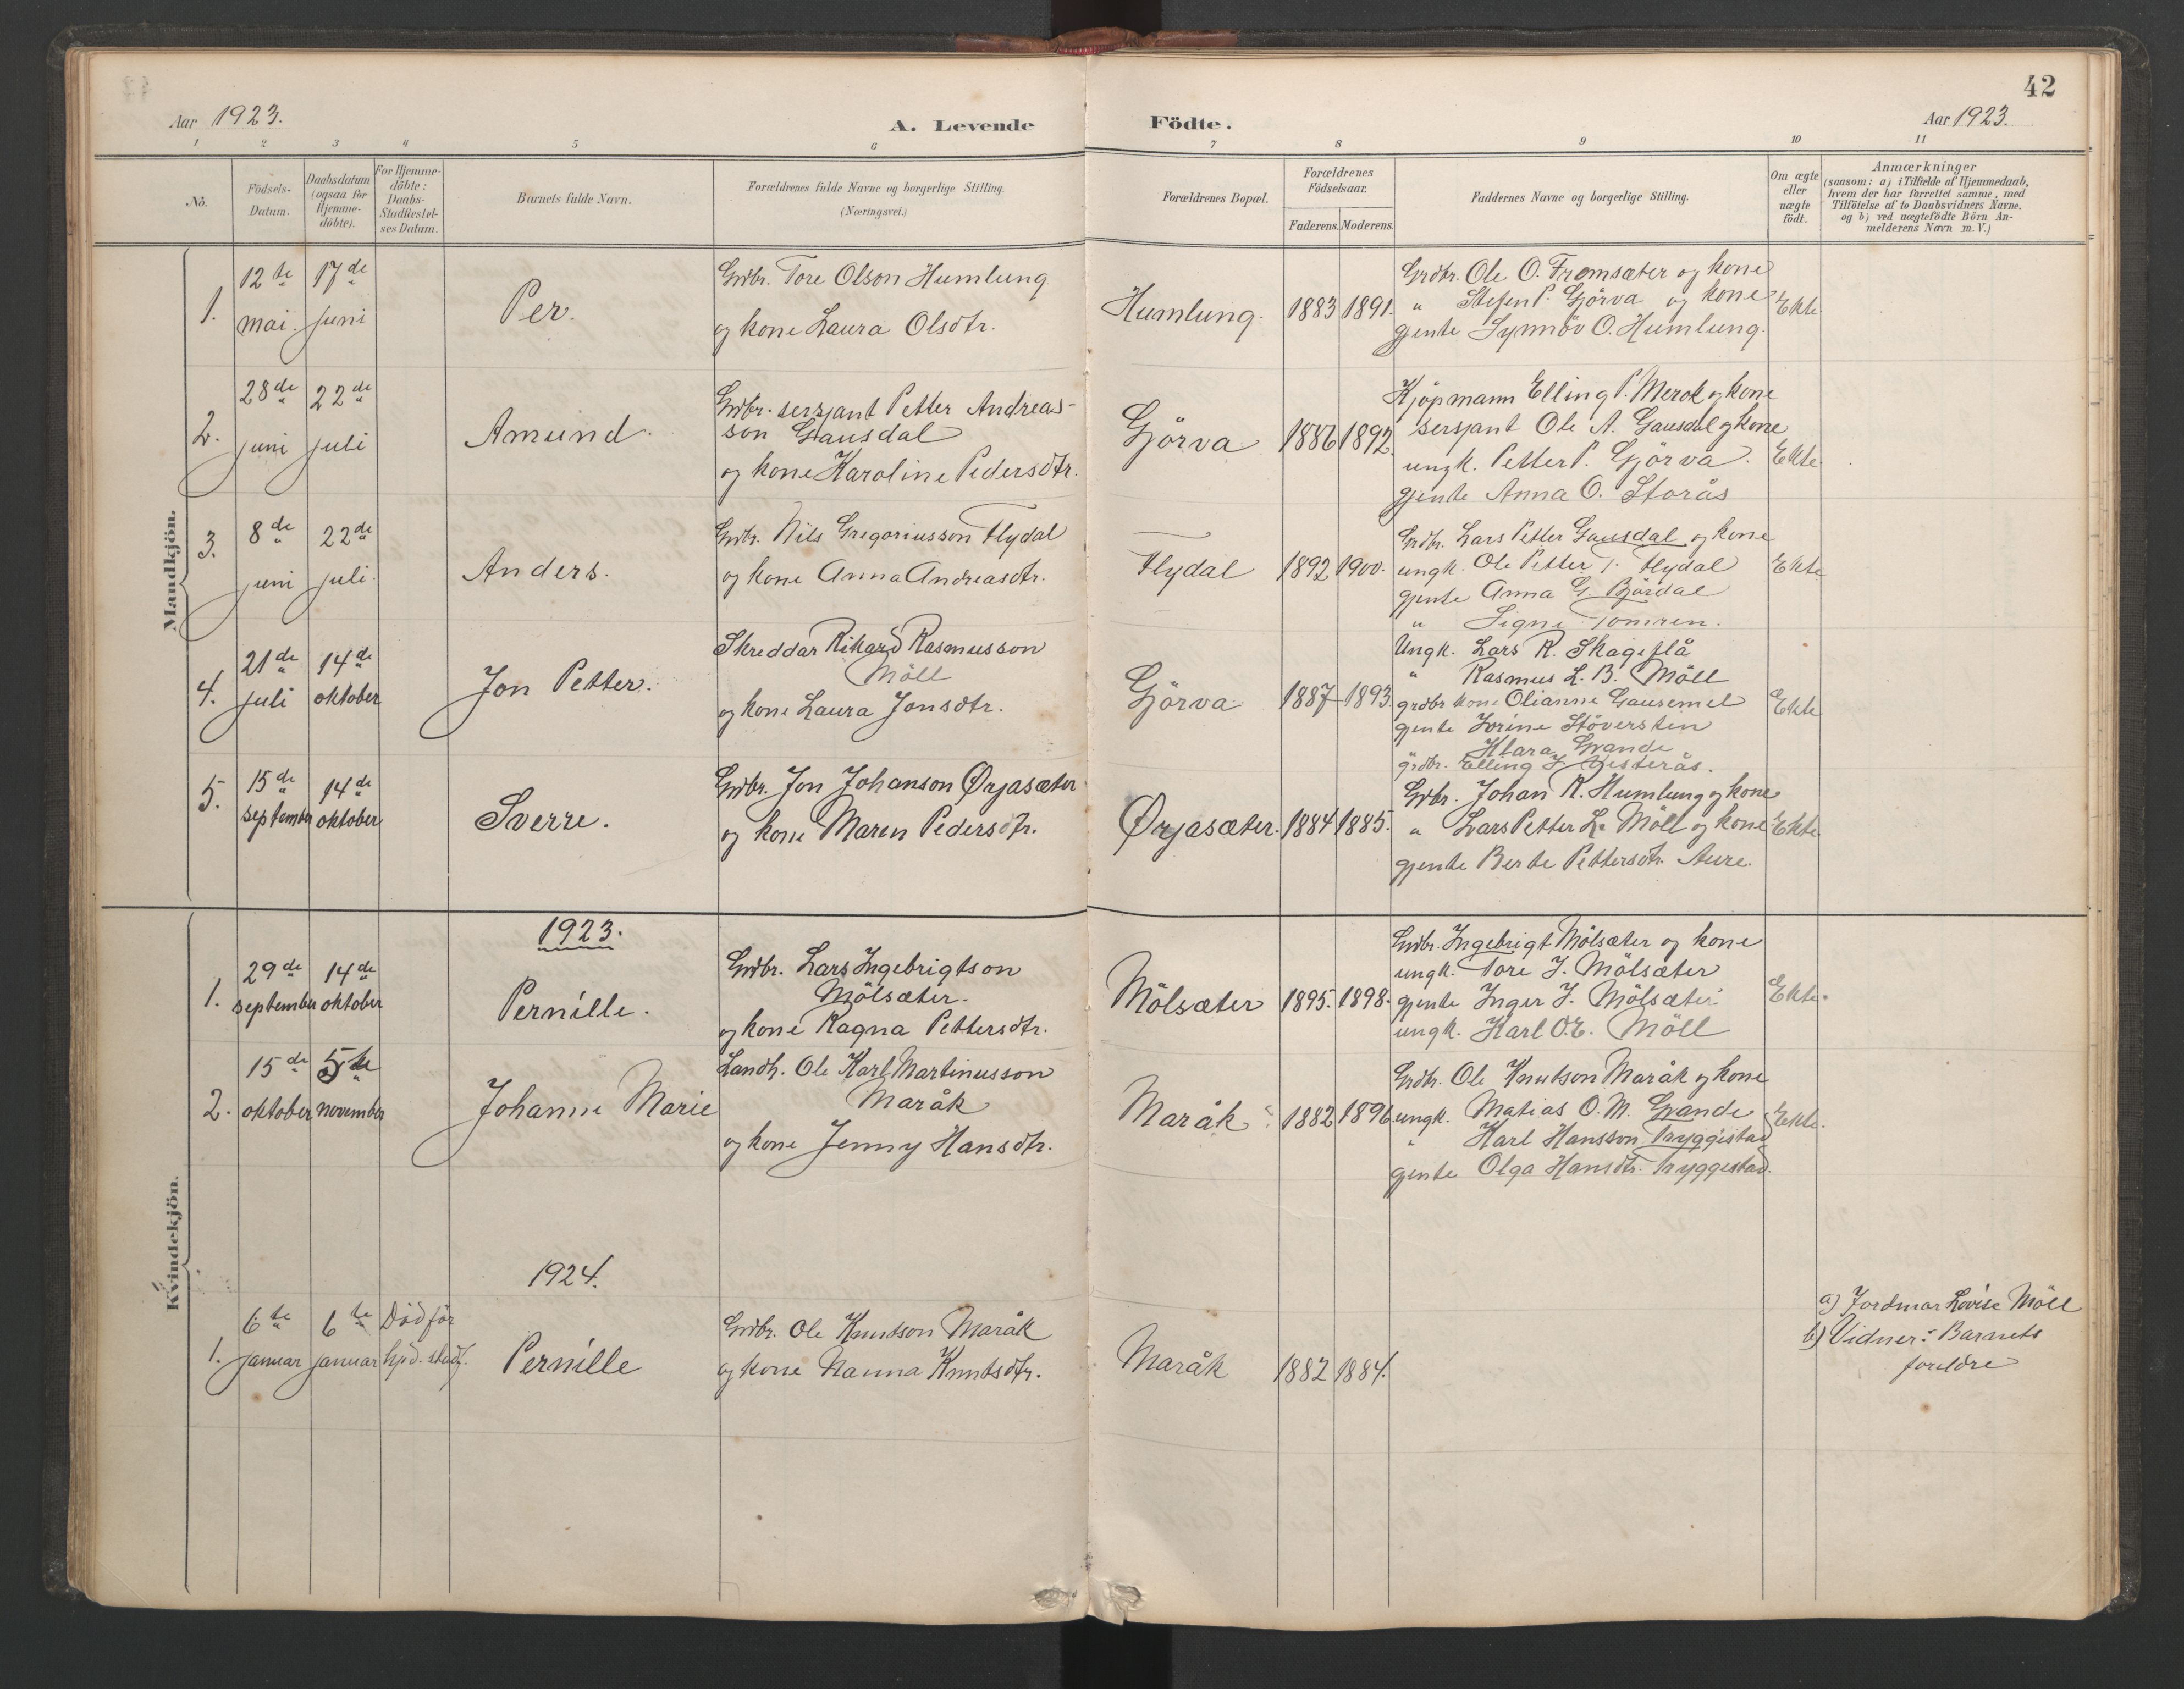 42
Aar 1923.
A. Levende Födte.
Aar 1923.
1 2 3 4 5 6 7 8 9 10 11
No.
Födsels-Datum.
Daabsdatum (ogsaa for Hjemme-döbte).
For Hjemme-döbte: Daabs-Stadfæstel-ses Datum.
Barnets fulde Navn.
Forældrenes fulde Navne og borgerlige Stilling.
(Næringsvei.)
Forældrenes Bopæl.
Forældrenes Födselsaar.
Faderens. Moderens.
Faddernes Navne og borgerlige Stilling.
Om ægte eller uægte födt.
Anmærkninger
(saasom: a) i Tilfælde af Hjemmedaab,
hvem der har forrettet samme, med
Tilföielse af to Daabsvidners Navne.
og b) ved uægtefödte Börn An-
melderens Navn m. V.)
Mandkjön.
1.
12te mai.
17de juni
Per.
Grdbr. Tore Olson Humlung
og kone Laura Olsdtr.
Humlung.
1883 1891.
Grdbr. Ole O. Fremsæter og kone
" Stefen P. Gjörva og kone
gjente Synnöv O. Humlung.
Ekte.
2.
28de juni
22de juli
Amund.
Grdbr. sersjant Petter Andreas-
son Gausdal
og kone Karoline Pedersdtr.
Gjörva
1886 1892.
Kjöpmann Elling P. Merok og kone
sersjant Ole A. Gausdal og kone
ungk. Petter P. Gjörva.
gjente Anna O. Storås
Ekte.
3.
8de juni
22de juli.
Anders.
Grdbr. Nils Gregoriusson Flydal
og kone Anna Andreasdtr.
Flydal
1892 1900.
Grdbr. Lars Petter Gausdal og kone
ungk. Ole Petter T. Flydal
gjente Anna G. Björdal
" Signe Tomren.
Ekte
4.
21de juli
14de oktober
Jon Petter.
Skreddar Rikard Rasmusson
Möll
og kone Laura Jonsdtr.
Gjörva
1887 1893.
Ungk. Lars R. Skageflå
" Rasmus L. B. Möll
grdbr kone Olianne Gausemel
gjente Jorine Stöversten
Klara Grande
grdbr. Elling J. Vesterås.
Ekte
5.
15de september
14de oktober
Sverre.
Grdbr. Jon Johanson Ørjasæter
og kone Maren Pedersdtr.
Ørjasæter.
1884 1885.
Grdbr. Johan R. Humlung og kone
" Lars Petter L. Möll og kone
gjente Berte Pettersdtr. Aure.
Ekte.
Kvindekjön.
1923.
1.
29de september
14de oktober
Pernille.
Grdbr. Lars Ingebrigtson
Mölsæter.
og kone Ragna Pettersdtr.
Mölsæter
1895. 1898.
Grdbr. Ingebrigt Mölsæter og kone
ungk. Tore I. Mölsæter
gjente Inger I. Mölsæter
ungk. Karl O.E. Möll
Ekte.
2.
15de oktober
5te november
Johanne Marie
Landh. Ole Karl Martinusson
Maråk
og kone Jenny Hansdtr.
Maråk
1882 1896
Grdbr. Ole Knutson Maråk og kone
ungk. Matias O. M. Grande
" Karl Hansson Tryggestad
gjente Olga Hansdtr. Tryggestad.
Ekte.
1924.
1.
6te januar
6te januar
Död för hjd. stadf.
Pernille
Grdbr. Ole Knutson Maråk
og kone Nanna Knutsdtr.
Maråk
1882 1884.
a) Jordmor Lovise Möll
b) Vidner: Barnets
foreldre